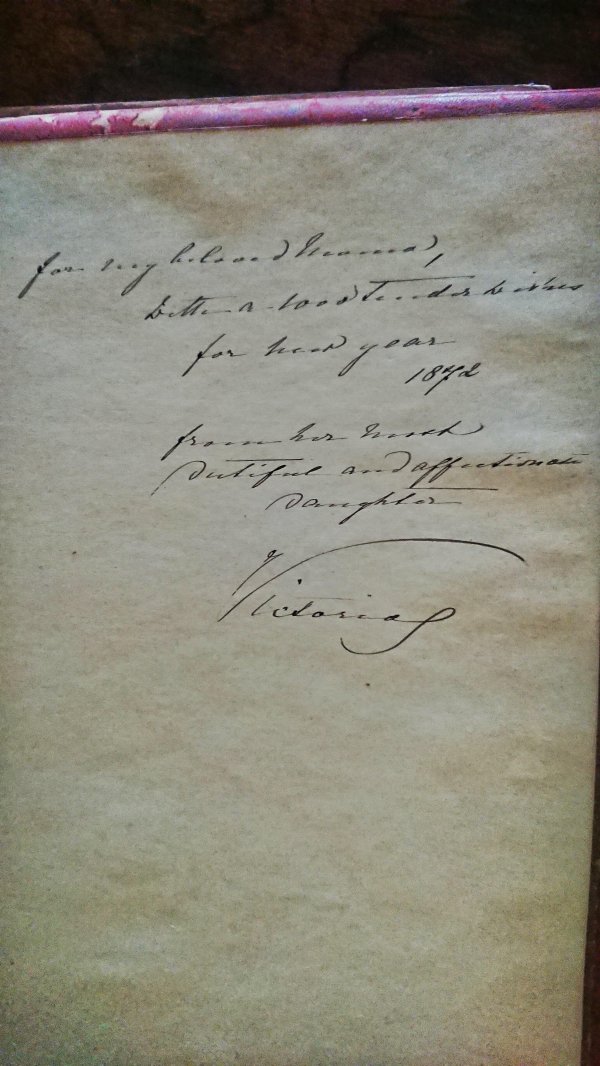 for my beloved Mama,
With a 1000 tender wishes
for next year
1872
from her most
dutiful and affectionate
daughter
Victoria